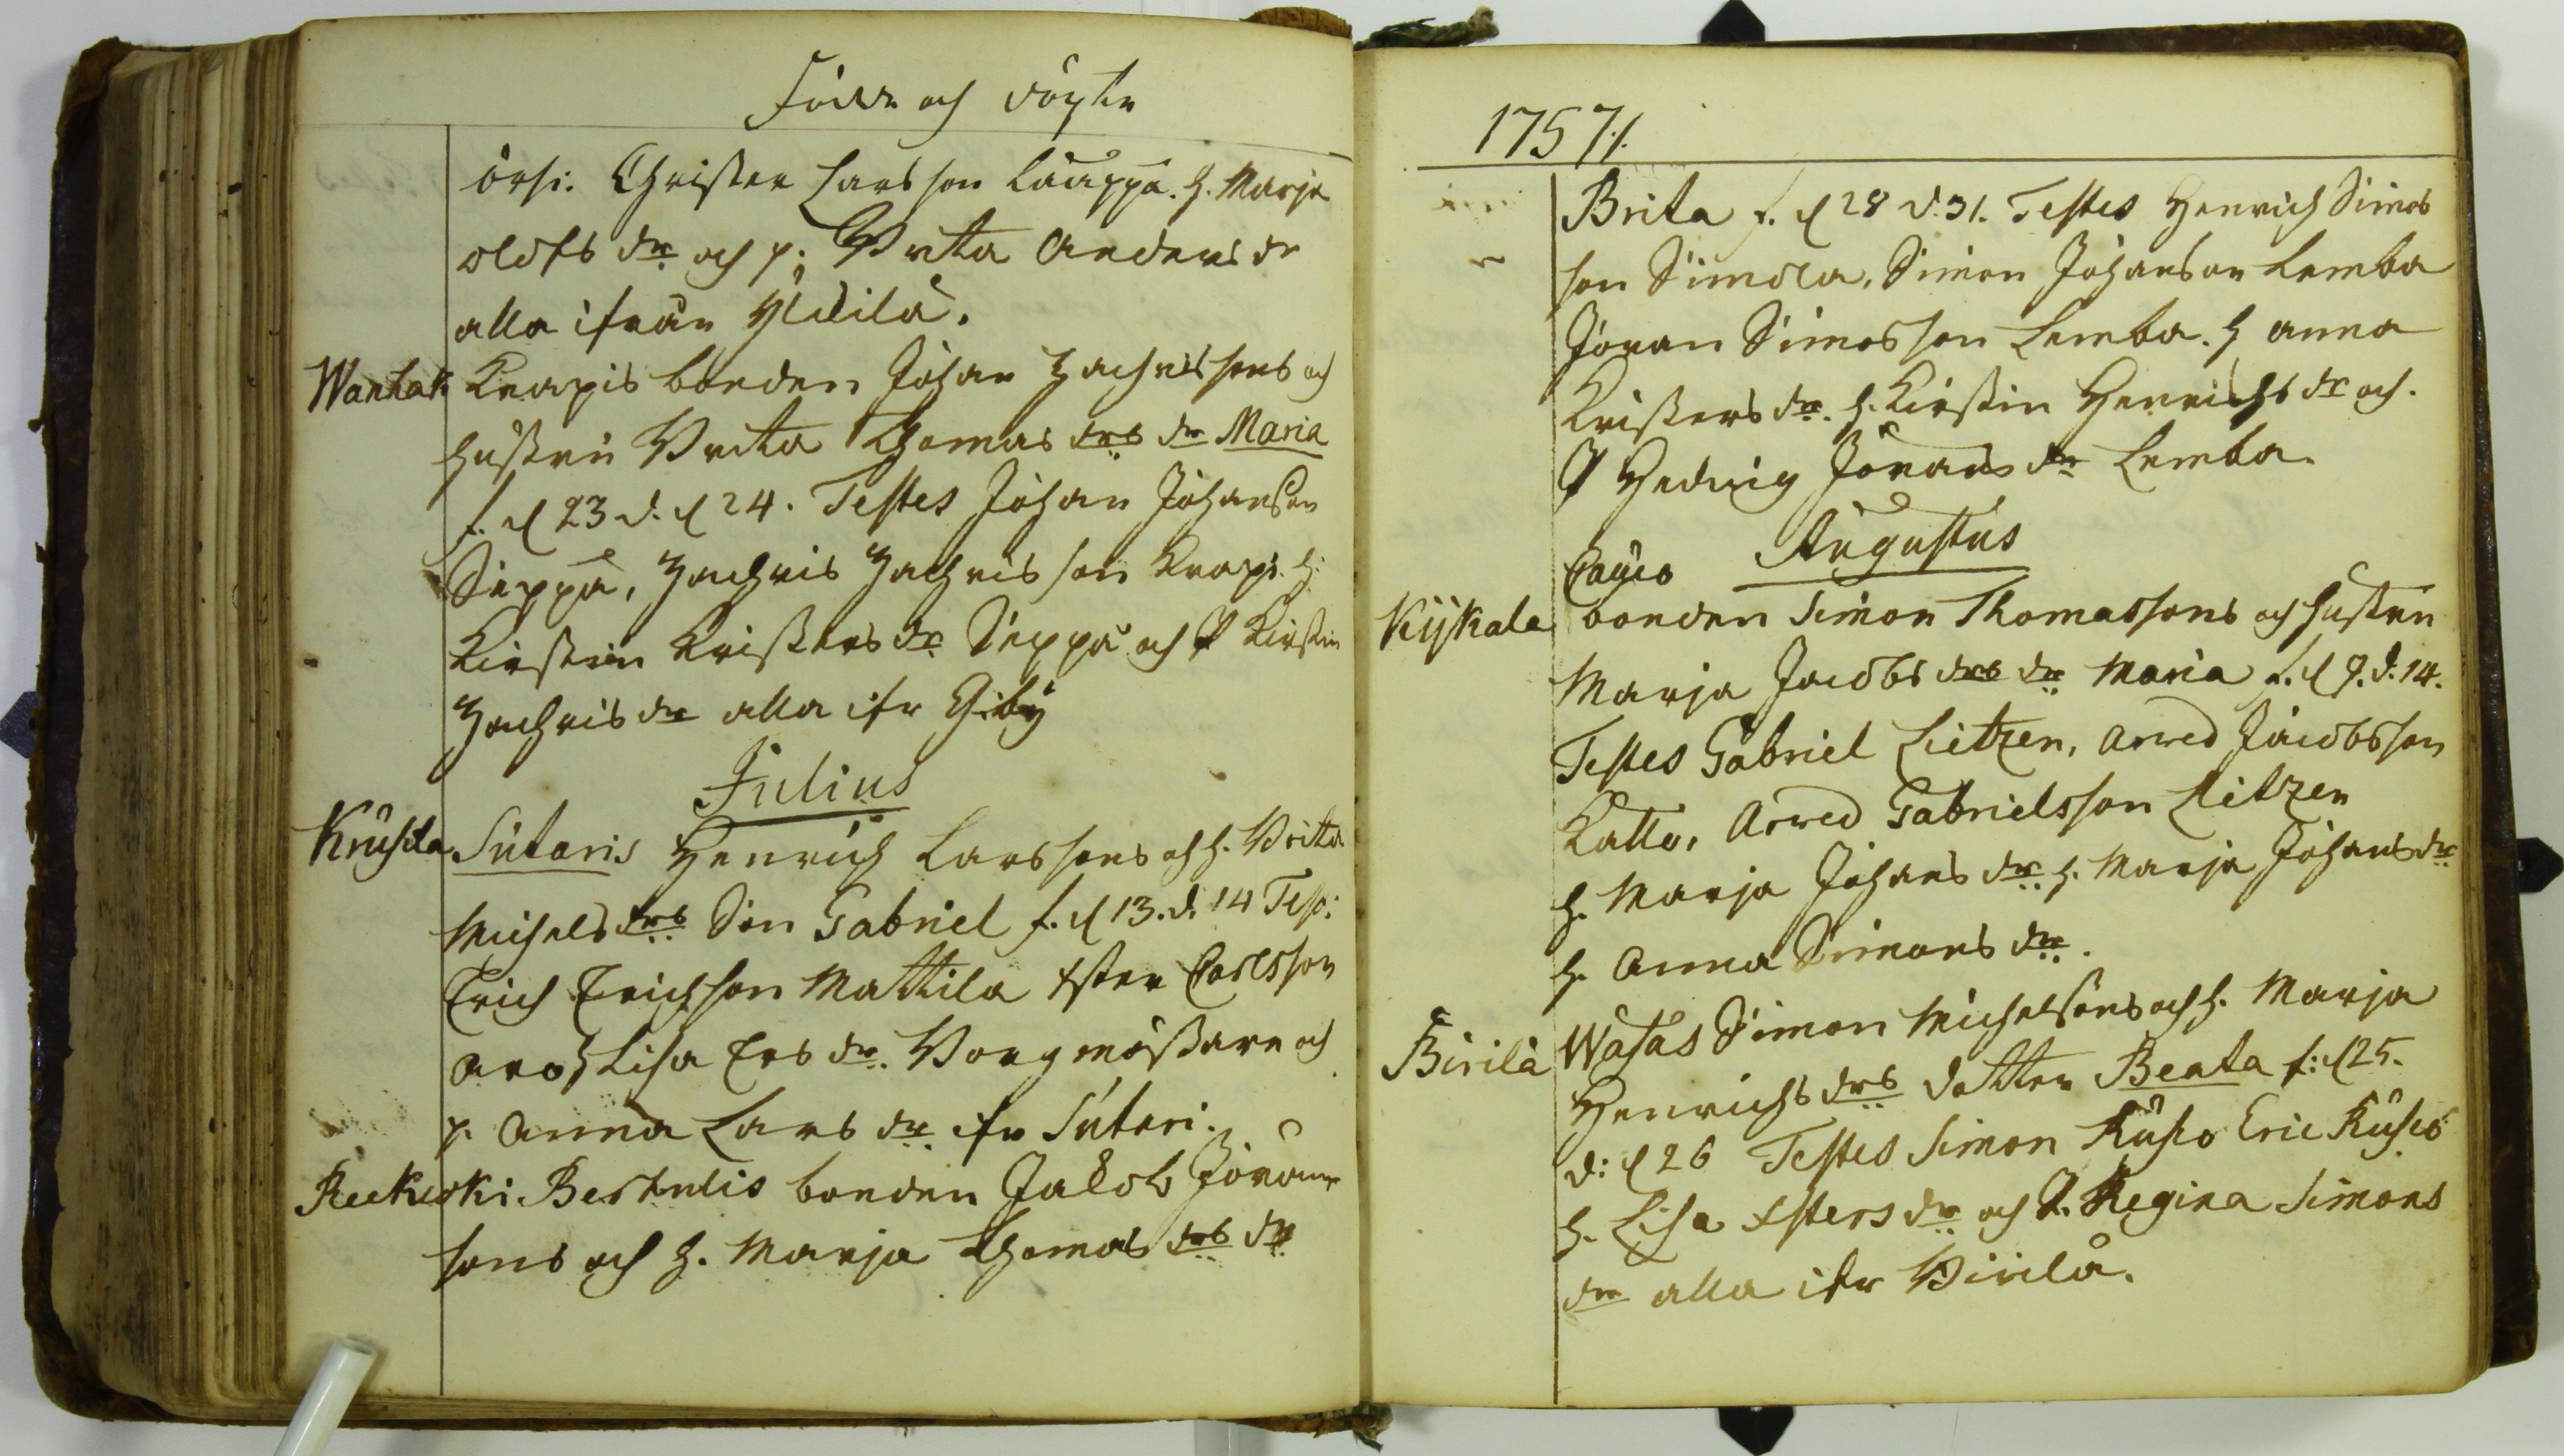 Födde och döpte
örsi. Christer Larsson Lauppa. h. Marja
olofs dr och p: Brita Anders dr
alla ifrån Yldilä.
Wanhak Knapis bonden Johan Zachrissons och
hustrun Brita Thomas drs dr Maria
f. d 23 d. d 24. Testes Johan Johanson
Seppä, Zachris Zachrisson Knapi. h.
Kirstin Kristers dr Seppä och P Kirstin
Zachris dr alla ifr Giby
Julius
Kruhila Sutaris Henrich Larssons och h. Brita
Michels drs Son Gabriel f. d 13. d. 14 Test:
Erich Erichson Mattila Ester Carlsson
Aro, h Lisa Ers dr. Borgmästare och
p. Anna Lars dr ifr Sutari.
Reekuski Bertulis bonden Jakob Jöran
sons och h. Marja Thomas drs dr
1757./.
Brita f. d 28 d. 31. Testes Henrich Simos
son Simola, Simon Johanson Lemba
Jöran Simosson Lemba. h Anna
Kristers dr. h. Kirstin Henrichs dr och.
P Hedvig Jörans dr Lemba.
Augustus
Kijkala bonden Simon Thomassons och hustrun
Marja Jacobs drs dr Maria f. d 9. d. 14.
Testes Gabriel Lietzen, Arved Jacobsson
Katto, Arved Gabrielsson Lietzen
h. Marja Johans dr. h. Marja Johans dr
h. Anna Simons dr.
Birilä Wasas Simon Michelsons och h. Marja
Henrichs drs dotter Beata f: d 25.
d: d 26 Testes Simon Kusio Eric Kusio
h. Lisa Esters dr och P. Regina Simons
dr alla ifr Birilä.